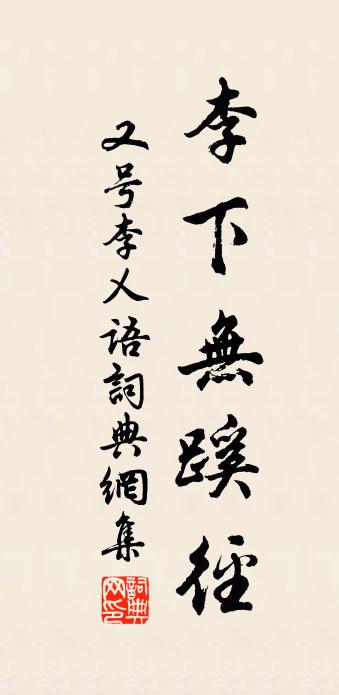 李下無蹊徑
又号李人語詞典網集
詞典
网印